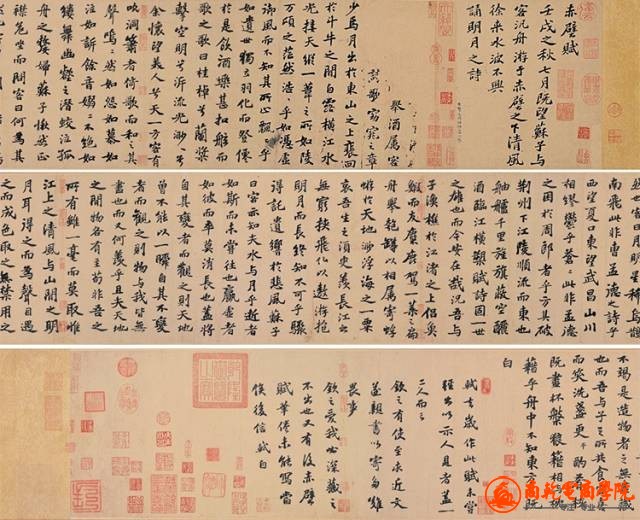 赤壁賦
壬戌之秋七月既望蘇子與
客泛舟游于赤壁之下清風
徐來水波不興
舉酒屬客
誦明月之詩
歌窈窕之章
少焉月出於東山之上裵回
於斗牛之間白露橫江水
光接天縱一葦之所如陵
萬頃之茫然浩浩乎如憑虛
御風而不知其所止飄飄乎
如遺世獨立羽化而登僊
於是飲酒樂甚扣舷而
歌之歌曰桂棹兮蘭槳
擊空明兮泝流光渺渺兮
余懷望美人兮天一方客有
吹洞簫者倚歌而和之其
聲嗚嗚然如怨如慕如
泣如訴餘音嫋嫋不絕如
縷舞幽壑之潛蛟泣孤
舟之嫠婦蘇子愀然正
襟危坐而問客曰何為其
然也客曰月明星稀烏鵲
南飛此非曹孟德之詩乎
西望夏口東望武昌山川
相繆鬱乎蒼蒼此非孟德
之困於周郎者乎方其破
荊州下江陵順流而東也
舳艫千里旌旗蔽空釃
酒臨江橫槊賦詩固一世
之雄也而今安在哉況吾與
子漁樵於江渚之上侶魚
鰕而友麋鹿駕一葉之扁
舟舉匏罇以相屬寄蜉
蝣於天地渺浮海之一粟
哀吾生之須臾羨長江之
無窮挾飛仙以遨游抱
明月而長終知不可乎驟
得託遺響於悲風蘇子
曰客亦知夫水與月乎逝者
如斯而未嘗往也贏虛者
如彼而卒莫消長也蓋將
自其變者而觀之則天地
曾不能以一瞬自其不變
者而觀之則物與我皆無
盡也而又何羨乎且夫天地
之間物各有主苟非吾之
所有雖一毫而莫取惟
江上之清風與山間之明
月耳得之而為聲目遇
之而成色取之無禁用之
不竭是造物者之無盡藏
也而吾與子之所共食客喜
而笑洗盞更酌肴核
既盡杯盤狼藉相與枕
藉乎舟中不知東方之既
白
軾去歲作此賦未嘗
輕出以示人見者蓋一
二人而已
欽之有使至求近文
遂親書以寄多難
畏事
欽之愛我必深藏之
不出也又有後赤壁
賦筆倦未能寫當
俟後信軾白